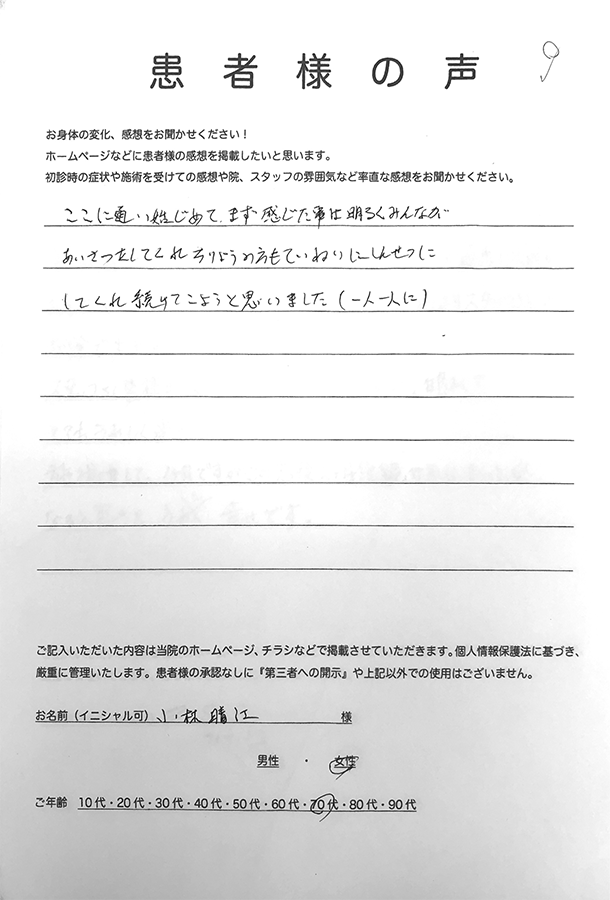 患者様の声
9
お身体の変化、感想をお聞かせください！
ホームページなどに患者様の感想を掲載したいと思います。
初診時の症状や施術を受けての感想や院、スタッフの雰囲気など率直な感想をお聞かせください。
ここに通い始じめて、まず感じた事は明るくみんなが
あいさつをしてくれちりょうの方もていねいにしんせつに
してくれ続けてこようと思いました(一人一人に)
ご記入いただいた内容は当院のホームページ、チラシなどで掲載させていただきます。個人情報保護法に基づき、
厳重に管理いたします。患者様の承認なしに『第三者への開示』や上記以外での使用はございません。
お名前（イニシャル可）小林晴江 様
男性 ・ 女性
ご年齢 10代・20代・30代・40代・50代・60代・70代・80代・90代